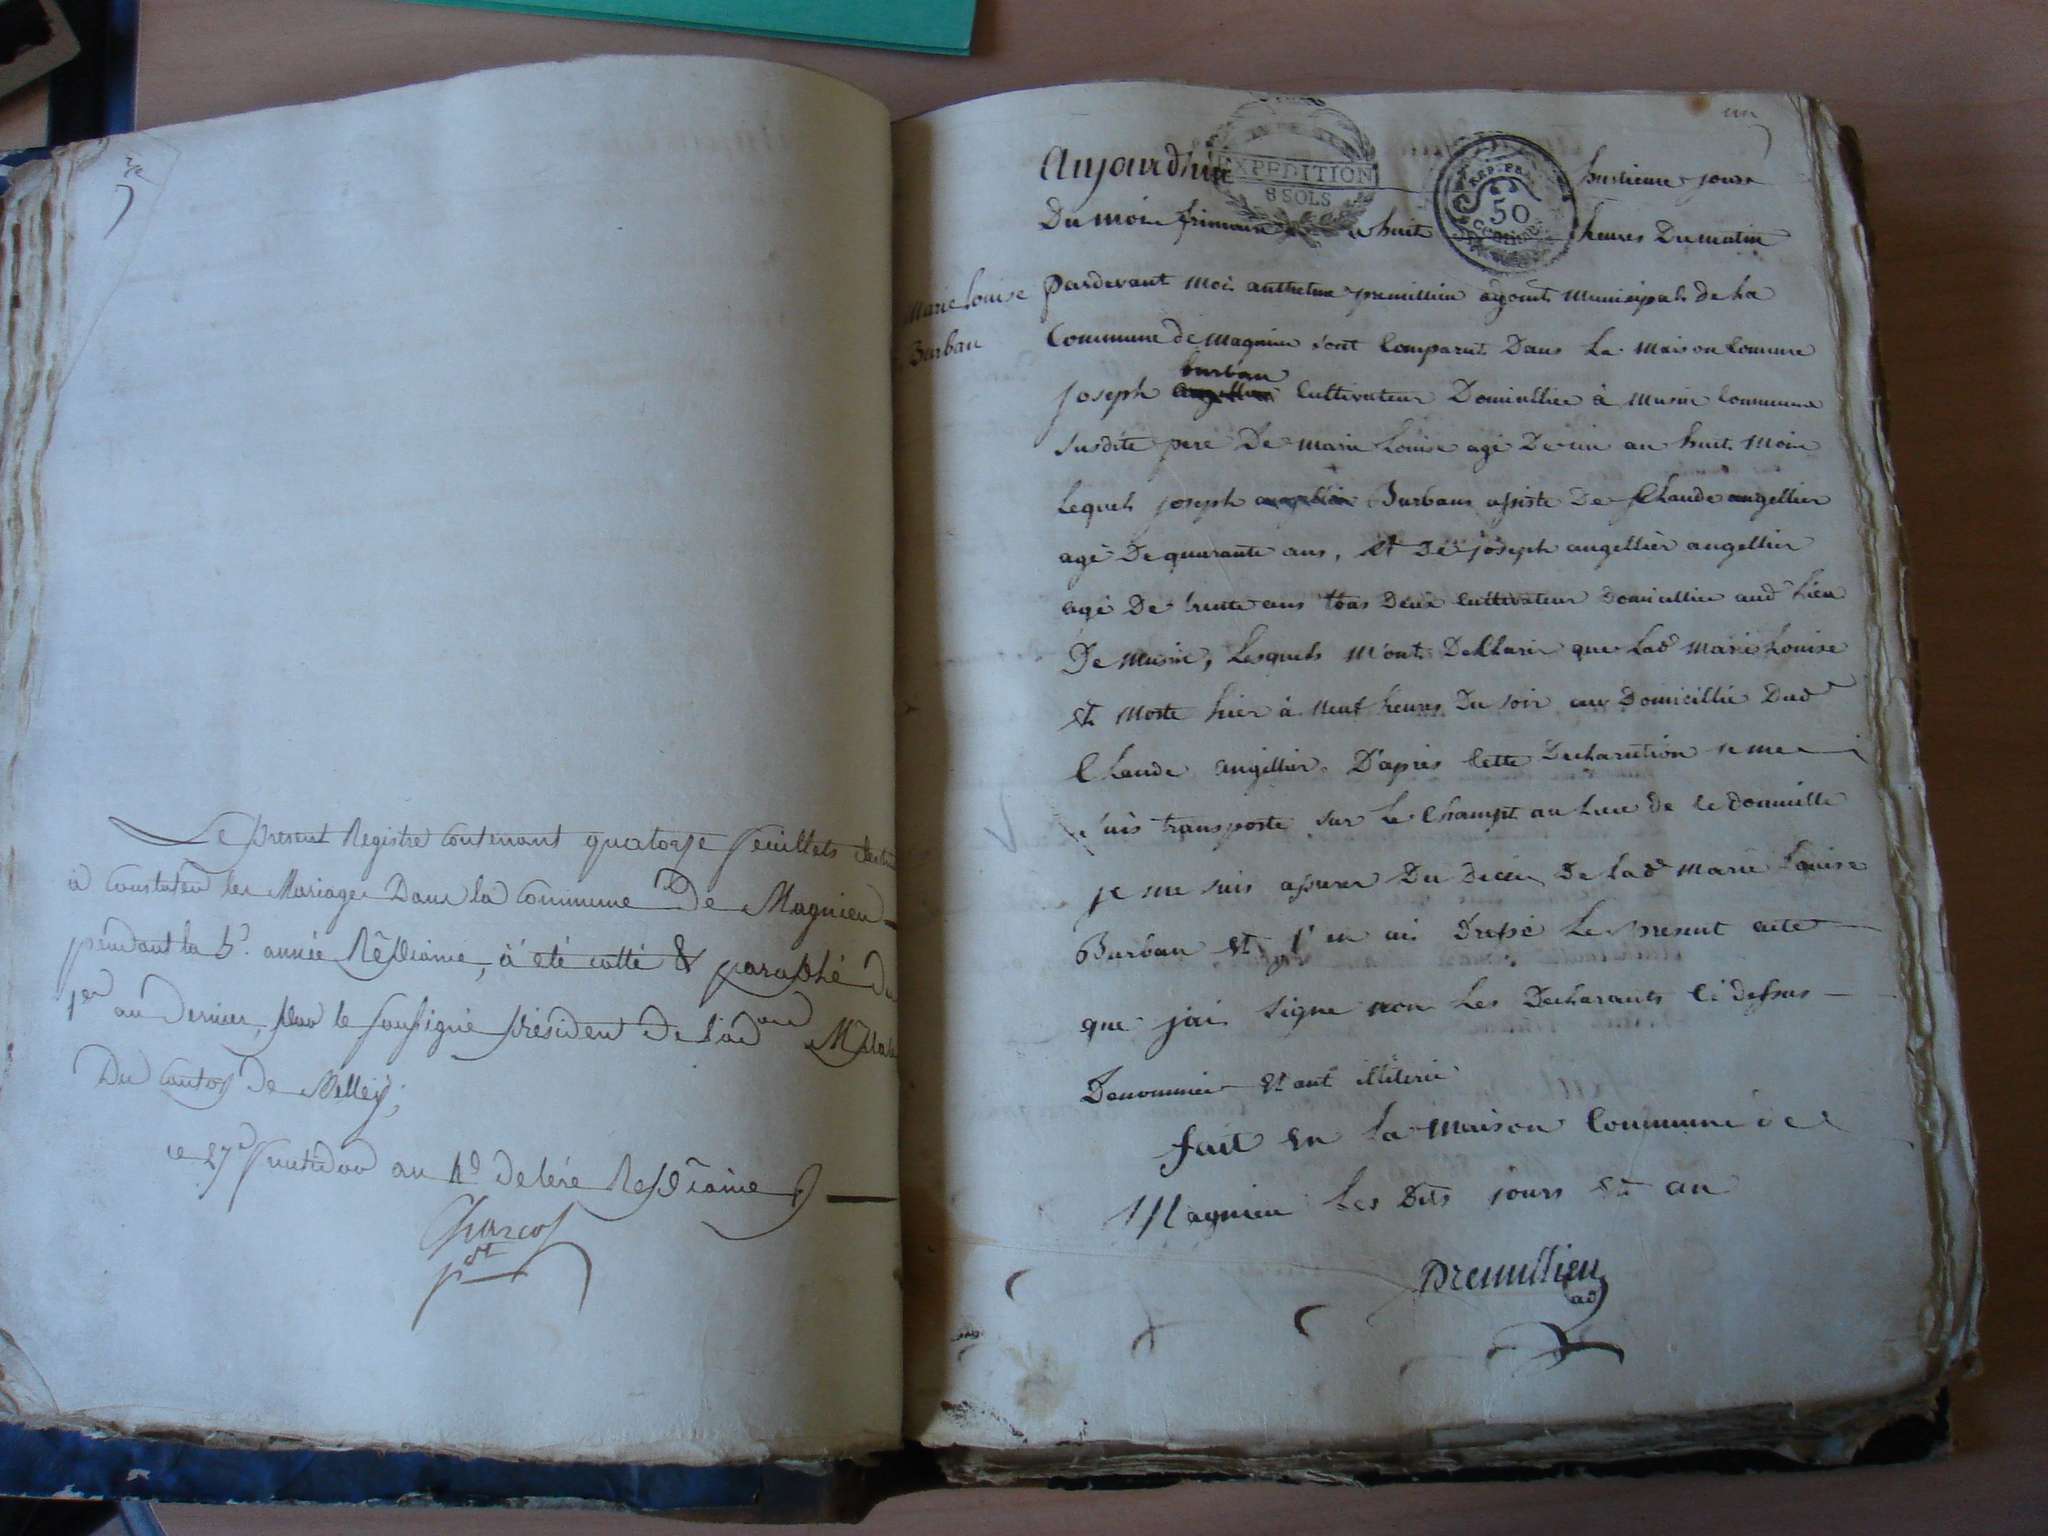 Le present Registre contenant quatorze feuillets
à Constater les Mariages Dans la Commune De Magnieu
pendant la 5e. année Républicaine, à été cotté & paraphé du
1er au Dernier, par le soussigné président De l'ad
Du canton de Belley;
ce 27e fructidor an 4e De l'ère Républicaine
Charcot
pdt
un
Aujourdhuit huitieme jours
Du mois frimaire a huit heures Du matin
EXPEDITION
8 SOLS
REP. FRA
50
CENTIMES
Marie Louise
Burban
pardevant moi anthelme premillieu agent Municipal de La
Commune de magnieu sont Comparut Dans La maison Commune
burban
joseph Cultivateur Domicillier à musin Commune
susdite pere De marie Louise agé De un an huit Mois
Lequel joseph Burban assiste De Claude angellier
agé De quarante ans, et De joseph angellier angellier
agé De trente ans tous Deux cultivateur Domicillier aud Lieu
De musin, Lesquels M'ont Declarer que Lad marie Louise
et Morte hier à neuf heures Du soir au Domicillié Dud
Claude angellier. D'après Cette Declaration je me
suis transporte sur Le Champt au Lieu de ce domicille
je me suis assurer Du Deces De Lad marie Louise
Burban et j'en ai Dressé Le present acte
que j'ai Signe non Les Declarants Ci dessus
Denommés etant illiteré
fait en La maison Commune de
Magnieu Les Dits jours et an
premillieu